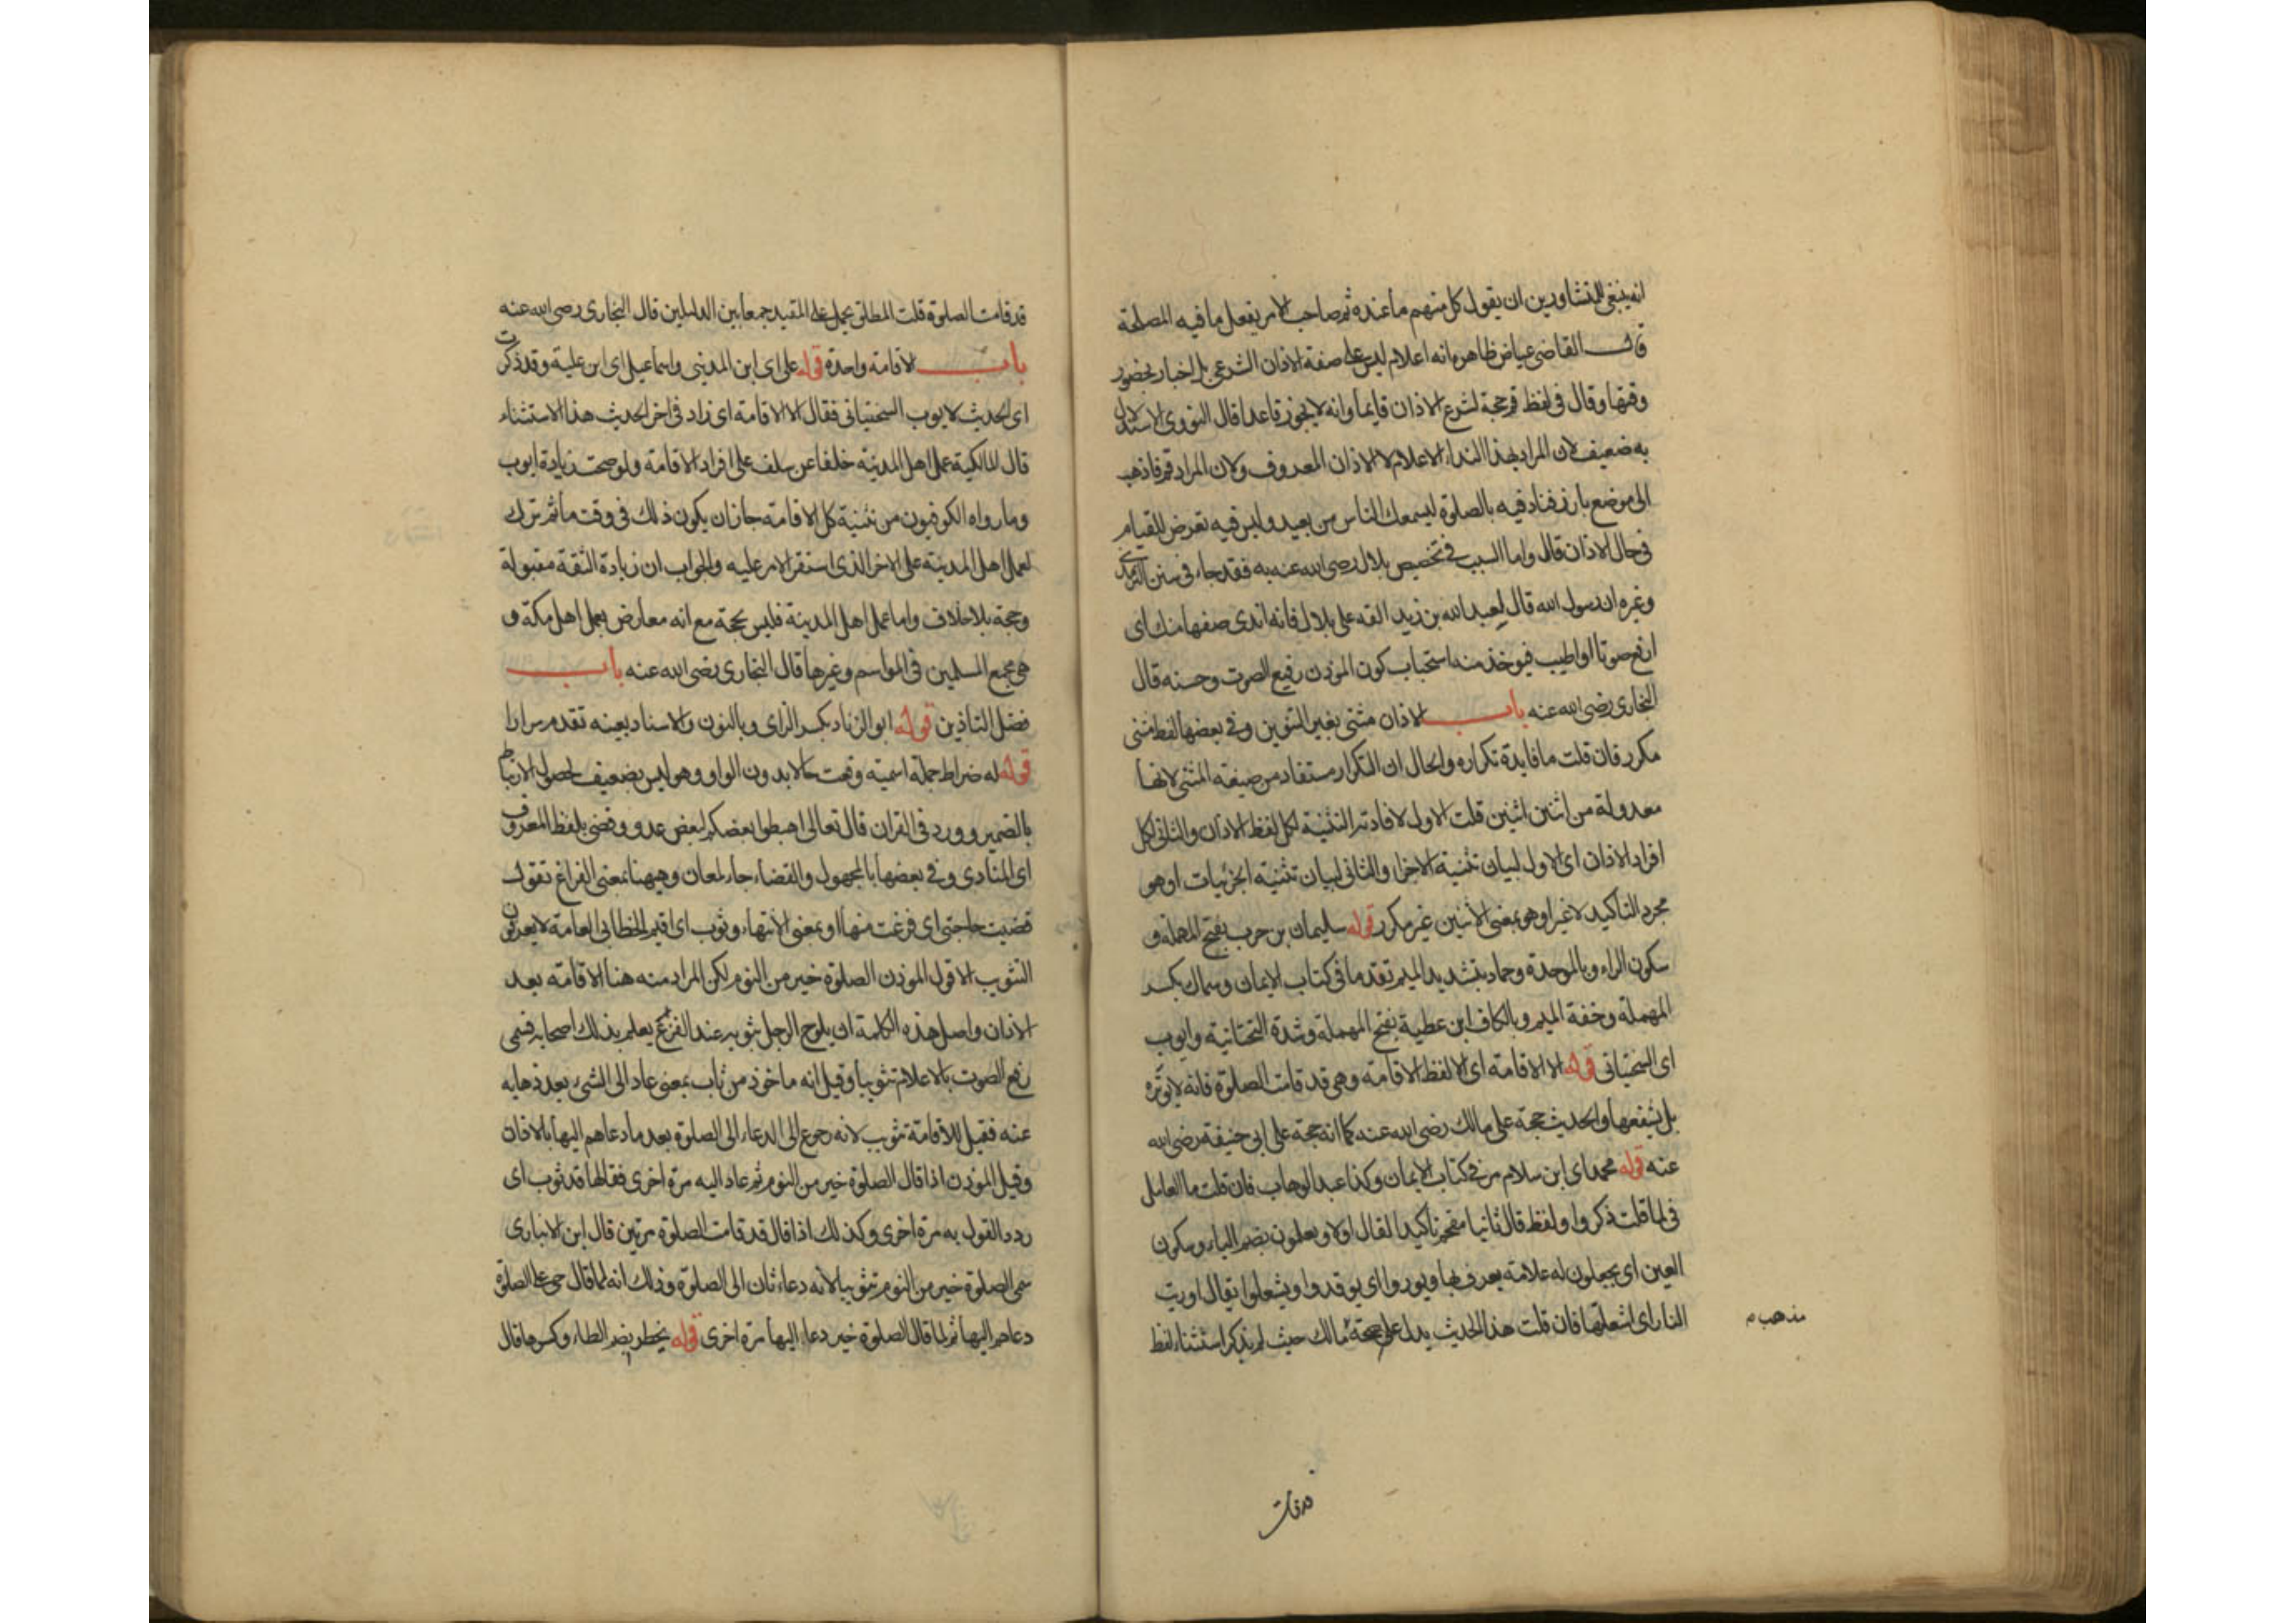 انه ينبغى للمتشاورين ان يقول كل منهم ما عنده ثم صاحب الامر يفعل ما فيه المصلحة
قال القاضى عياض ظاهره انه اعلام ليس على صفة الاذان الشرعى بل اخبار بحضور
وقتها وقال فى لفظ قم حجة لشرع الاذان قايما وانه لا يجوز قاعدا قال النووى الاستدلال
به ضعيف لان المراد بهذا النداء الاعلام لا الاذان المعروف ولان المراد قم فاذهب
الى موضع بارز فناد فيه بالصلوة ليسمعك الناس من بعيد وليس فيه تعرض للقيام
فى حال الاذان قال واما السبب فى تخصيص بلال رضى الله عنه به فقد جاء فى سنن الترمذى
وغيره ان رسول الله قال لعبد الله بن زيد القه على بلال فانه اندى صوتا منك اى
ارفع صوتا او اطيب فيوخذ منه استحباب كون الموذن رفيع الصوت وحسنه قال
البخارى رضى الله عنه باب الاذان مثنى بغير التنوين وفى بعضها لفظ مثنى
مكرر فان قلت ما فايدة تكراره والحال ان التكرار مستفاد من صيغة المثنى لانها
معدولة من اثنين اثنين قلت الاول لافادة التثنية لكل لفظ الاذان والثانى لكل
افراد الاذان اى الاول لبيان تثنية الاجزا والثانى لبيان تثنية الجزئيات او هو
مجرد التاكيد لا غير او هو بمعنى الاثنين غير مكرر قوله سليمان بن حرب بفتح المهملة و
سكون الراء وبالموحدة وحماد بتشديد الميم تقدما فى كتاب الايمان وسماك بكسر
المهملة وخفة الميم وبالكاف ابن عطية بفتح المهملة وشدة التحتانية وايوب
اى السختيانى قوله الا الاقامة اى الا لفظ الاقامة وهى قد قامت الصلوة فانه لا يوتره
بل يشفعها والحديث حجة على مالك رضى الله عنه كما انه حجة على ابى حنيفة رضى الله
عنه قوله محمد اى ابن سلام مر فى كتاب الايمان وكذا عبد الوهاب فان قلت ما العامل
فى لما قلت ذكروا ولفظ قال ثانيا مقحم تاكيدا لقال اولا ويعلمون بضم الياء وسكون
العين اى يجعلون له علامة يعرف بها ويوروا اى يوقدوا ويشعلوا يقال اوريت
النار اى اشعلتها فان قلت هذا الحديث يدل على صحة مالك حيث لم يذكر استثناء لفظ
مذهب م
قد قامت
قد قامت الصلوة قلت المطلق يحمل على المقيد جمعا بين الدليلين قال البخارى رضى الله عنه
باب الاقامة واحدة قوله على اى ابن المدينى واسماعيل اى ابن علية وقد ذكرت
اى الحديث لايوب السختيانى فقال الا الاقامة اى زاد فى اخر الحديث هذا الاستثناء
قال المالكية عمل اهل المدينة خلفا عن سلف على افراد الاقامة ولو صحت زيادة ايوب
وما رواه الكوفيون من تثنية كل الاقامة جاز ان يكون ذلك فى وقت ما ثم ترك
لعمل اهل المدينة على الاخر الذى استقر الامر عليه والجواب ان زيادة الثقة مقبولة
وحجة بلا خلاف واما عمل اهل المدينة فليس بحجة مع انه معارض بعمل اهل مكة و
هى مجمع المسلمين فى المواسم وغيرها قال البخارى رضى الله عنه باب
فضل التاذين قوله ابو الزناد بكسر الزاى وبالنون والاسناد بعينه تقدم مرارا
قوله له ضراط جملة اسمية وقعت حالا بدون الواو وهو ليس بضعيف لحصول الارتباط
بالضمير وورد فى القران قال تعالى اهبطوا بعضكم لبعض عدو وقضى بلفظ المعروف
اى المنادى وفى بعضها بالمجهول والقضاء جاء لمعان وههنا بمعنى الفراغ تقول
قضيت حاجتى اى فرغت منها او بمعنى الانتهاء وثوب اى اقيم الخطابى العامة لا يعرفون
التثويب الا قول الموذن الصلوة خير من النوم لكن المراد منه هنا الاقامة بعد
الاذان واصل هذه الكلمة ان يلوح الرجل بثوبه عند الفزع يعلم بذلك اصحابه فسمى
رفع الصوت بالاعلام تثويبا وقيل انه ماخوذ من ثاب بمعنى عاد الى الشىء بعد ذهابه
عنه فقيل للاقامة تثويب لانه رجوع الى الدعاء الى الصلوة بعد ما دعاهم اليها بالاذان
وقيل الموذن اذا قال الصلوة خير من النوم ثم عاد اليه مرة اخرى فقالها قد ثوب اى
ردد القول به مرة اخرى وكذلك اذا قال قد قامت الصلوة مرتين قال ابن الانبارى
سمى الصلوة خير من النوم تثويبا لانه دعاء ثان الى الصلوة وذلك انه لما قال حى على الصلوة
دعاهم اليها ثم لما قال الصلوة خير دعاء اليها مرة اخرى قوله يخطر بضم الطاء وكسرها قال